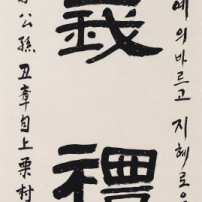 예의바르고 지혜로
義禮
公孫丑章句上 栗村